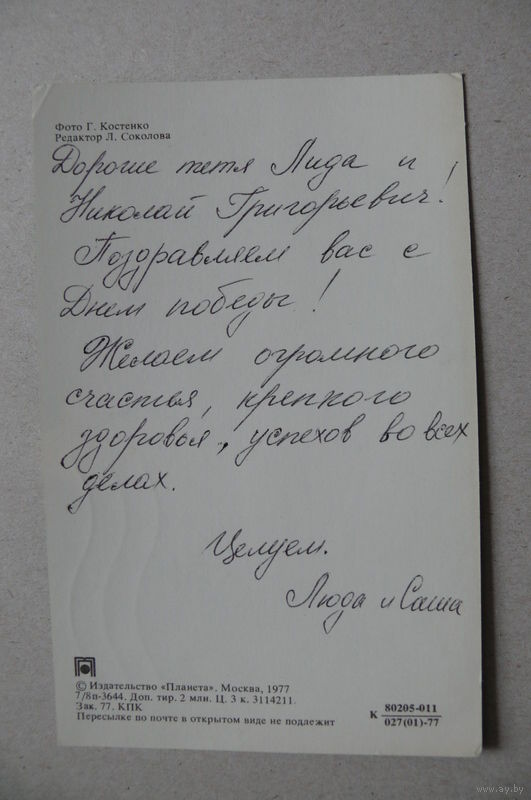 Фото Г. Костенко
Редактор Л. Соколова
Дорогие тетя Лида и
Николай Григорьевич!
Поздравляем вас с
Днем победы!
Желаем огромного
счастья, крепкого
здоровья, успехов во всех
делах.
Целуем.
Люда и Саша
© Издательство «Планета». Москва, 1977
7/8п-3644. Доп. тир. 2 млн. Ц. 3 к. 3114211.
Зак. 77. КПК
Пересылке по почте в открытом виде не подлежит
К 80205-011
027(01)-77
www.ay.by